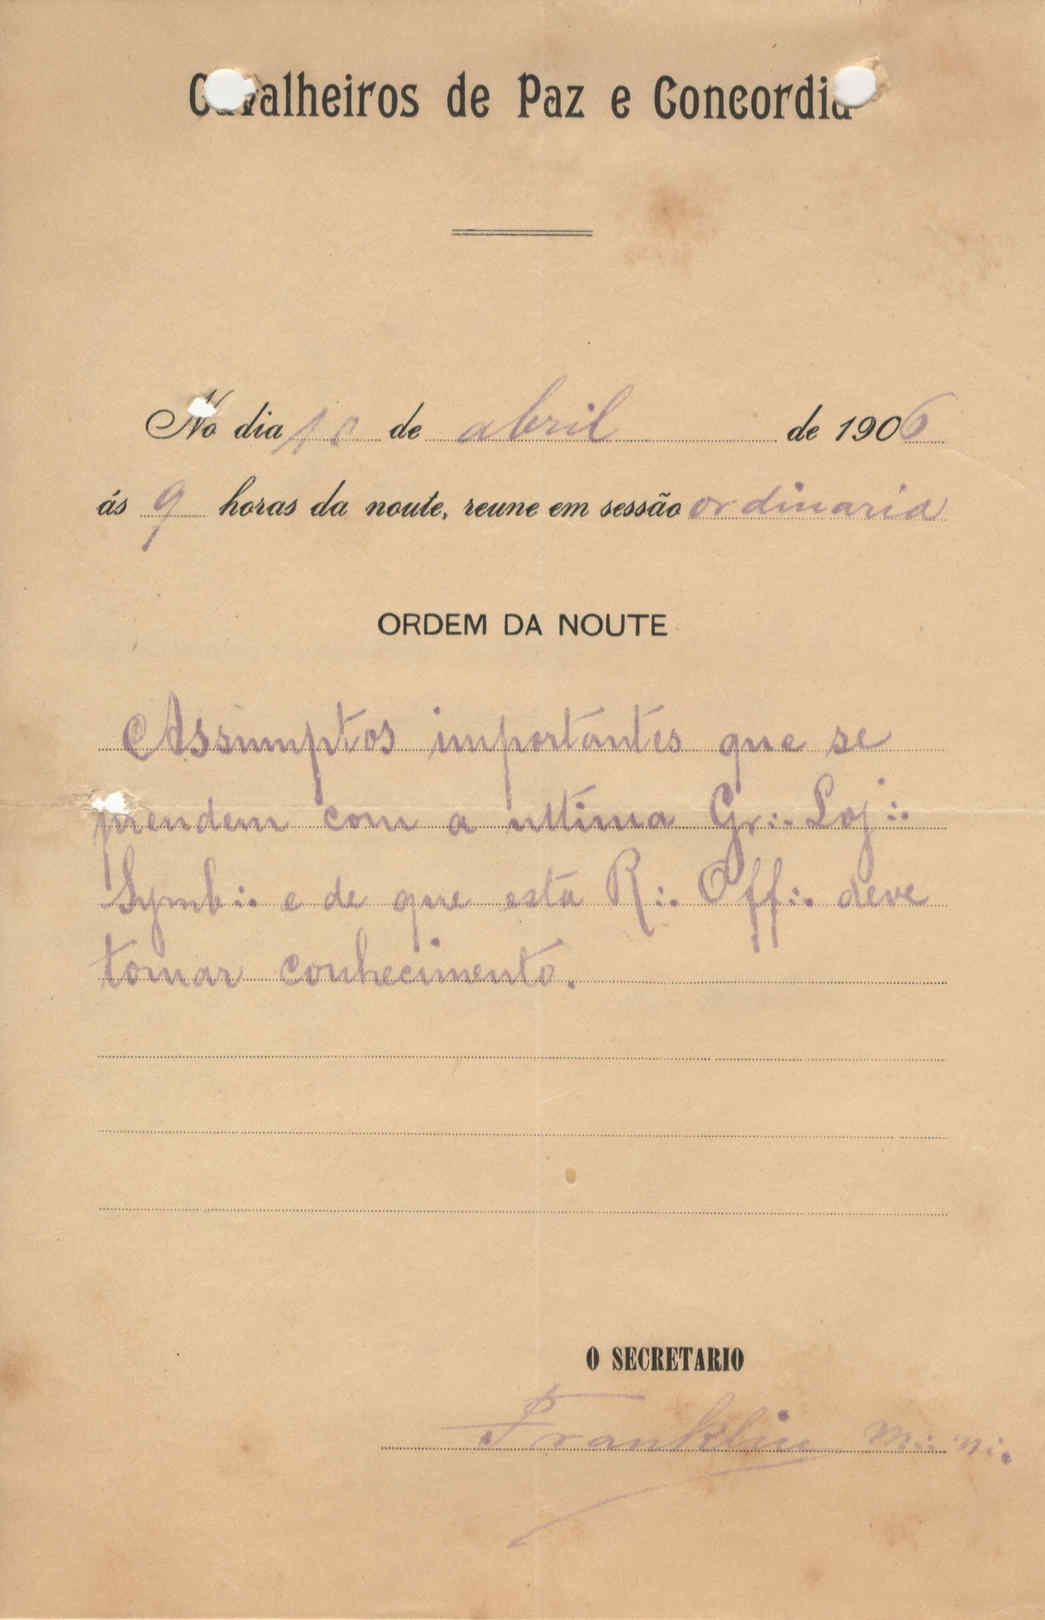 Cavalheiros de Paz e Concordia
No dia 10 de abril de 1906
ás 9 horas da noute, reune em sessão ordinaria
ORDEM DA NOUTE
Assumptos importantes que se
prendem com a ultima Gr∴ Loj∴
Symb∴ e de que esta R∴ Off∴ deve
tomar conhecimento.
O SECRETARIO
Franklin M∴ M∴